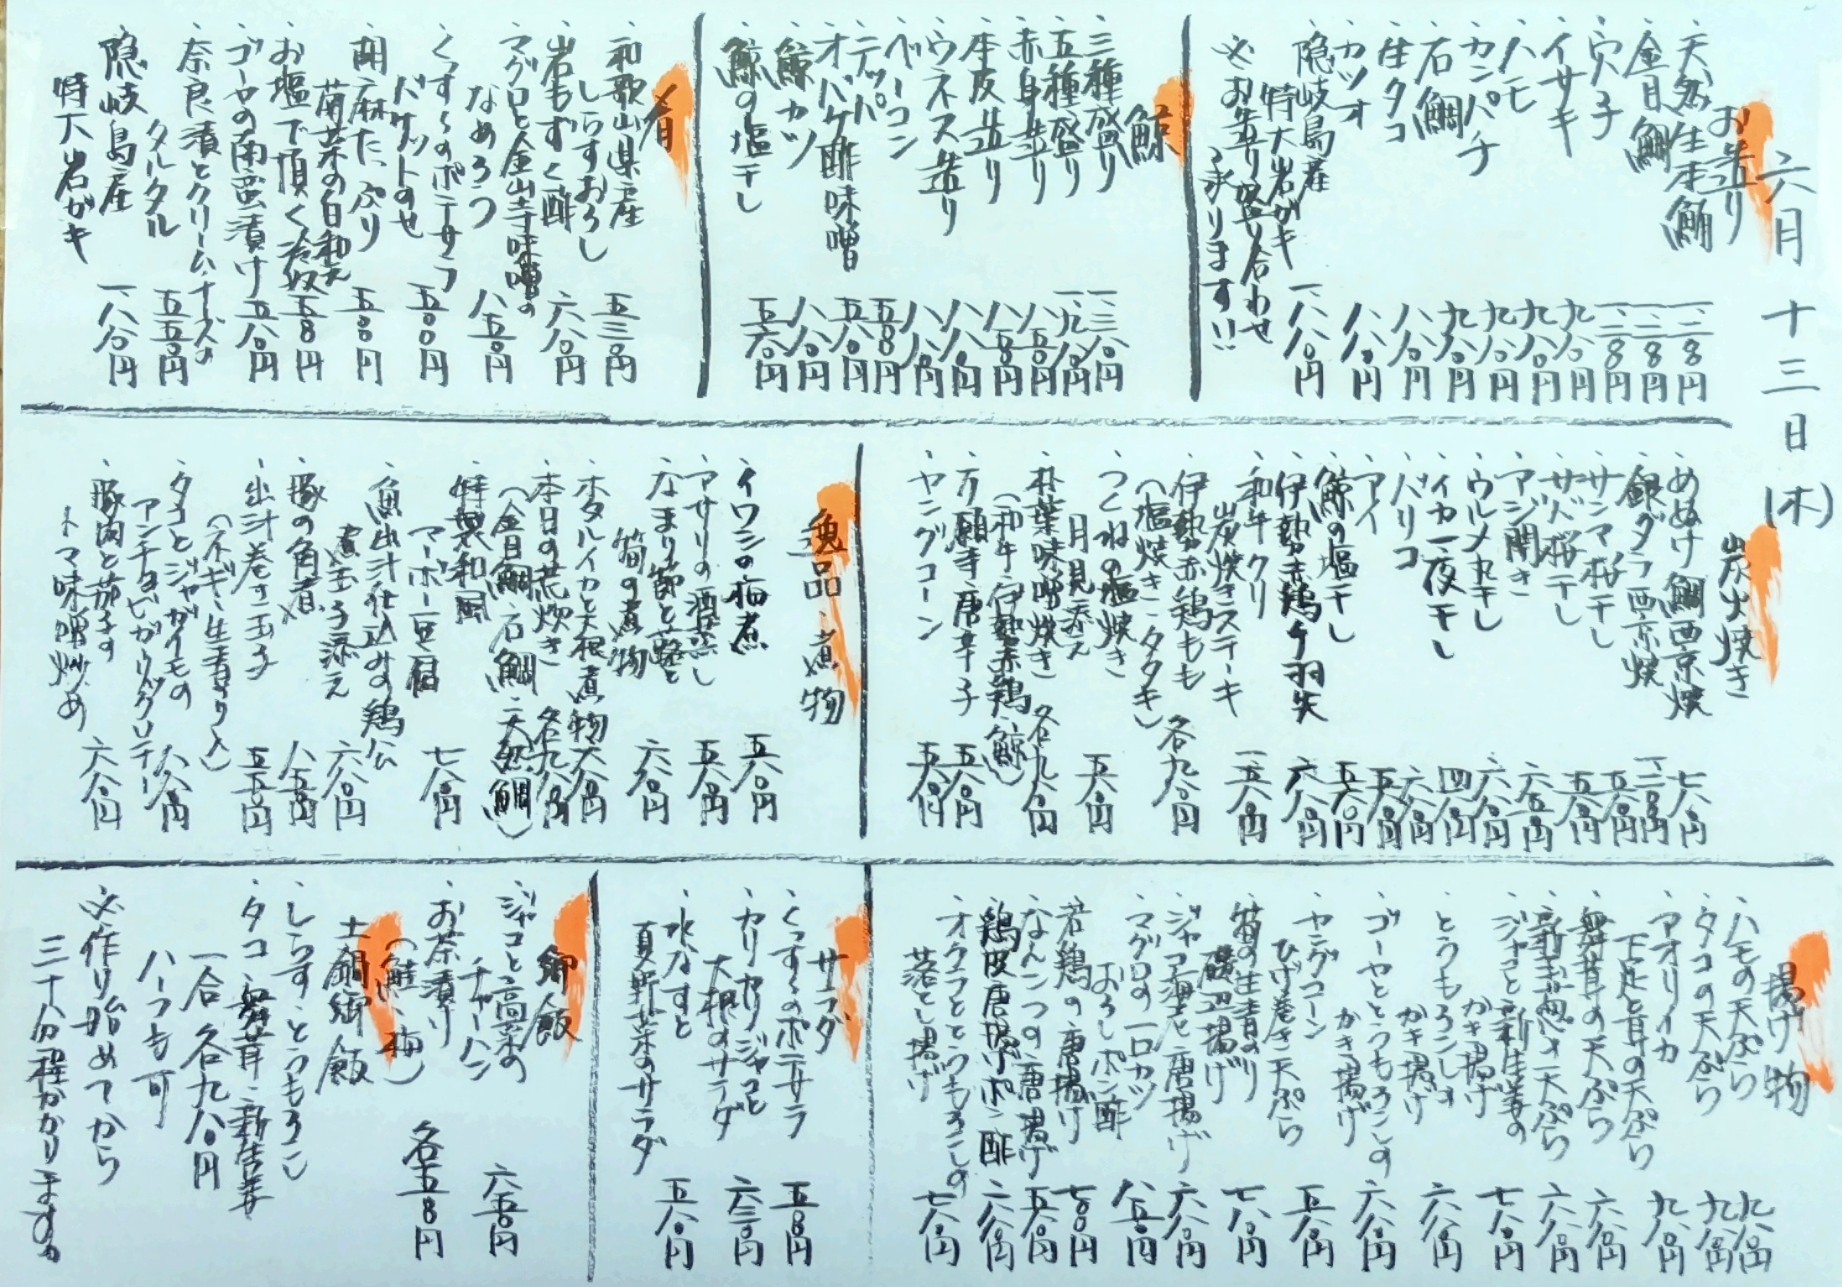 六月十三日(木)
お造り
、天然生本鮪 一、二八〇円
、金目鯛 一、二八〇円
、穴子 一、二八〇円
、イサキ 九八〇円
、ハモ 九八〇円
、カンパチ 九八〇円
、石鯛 九八〇円
、生タコ 八八〇円
、カツオ 八八〇円
、隠岐島産
特大岩がキ 一、八八〇円
※お造り盛り合わせ
承ります!!
鯨
、三種盛り 一、三八〇円
、五種盛り 一、九八〇円
、赤身造り 八五〇円
、本皮造り 八五〇円
、ウネス造り 八八〇円
、ベーコン 八八〇円
、テッパ 五八〇円
、オバケ酢味噌 五八〇円
、鯨カツ 八八〇円
、鯨の塩干し 五六〇円
肴
、和歌山県産
しらすおろし 五三〇円
、岩もずく酢 六八〇円
、マグロと金山寺味噌の
なめろう 八五〇円
、くずし々のポテサラ
バケットのせ 五〇〇円
、胡麻たっぷり
菊菜の白和え 五〇〇円
、お塩で頂く冷奴 五五〇円
、ゴーヤの南蛮漬け 五八〇円
、奈良漬とクリームチーズの
タルタル 五五〇円
、隠岐島産
特大岩がキ 一、八八〇円
炭火焼き
、めぬけ鯛西京焼 七八〇円
、銀ダラ西京焼 一、二八〇円
、サンマ桜干し 五五〇円
、サバ桜干し 五八〇円
、アジ開き 六五〇円
、ウルメ丸干し 六八〇円
、イカ一夜干し 四八〇円
、バリコ 六八〇円
、アイ 五八〇円
、鯨の塩干し 五六〇円
、伊勢赤鶏手羽先 六八〇円
、和牛クリ
炭焼きステーキ 一、五八〇円
、伊勢赤鶏もも
(塩焼き・タタキ) 各九八〇円
、つくねの塩焼き
月見添え 五八〇円
、朴葉味噌焼き
(和牛、伊勢赤鶏、鯨) 各九八〇円
、万願寺唐辛子 五八〇円
、ヤングコーン 五八〇円
逸品・煮物
、イワシの梅煮 五八〇円
、アサリの酒蒸し 五八〇円
、なまり節と蕗と
筍の煮物 六八〇円
、ホタルイカと大根煮物 六八〇円
、本日の荒炊き 各九八〇円
(金目鯛、石鯛、天然鯛)
、特製和風
マーボー豆腐 七八〇円
、魚出汁仕込みの鶏公
煮玉子添え 六八〇円
、豚の角煮 八五〇円
、出汁巻き玉子
(ネギ、生青のり入) 五五〇円
、タコとジャガイモの
アンチョビガーリックソテー 八八〇円
、豚肉と茄子す
トマ味噌炒め 六八〇円
揚げ物
、ハモの天ぷら 九八〇円
、タコの天ぷら 九八〇円
、アオリイカ
下足と耳の天ぷら 九八〇円
、舞茸の天ぷら 六八〇円
、新玉葱の天ぷら 六八〇円
、ジャコと新生姜の
かき揚げ 七八〇円
、とうもろこしの
かき揚げ 六八〇円
、ゴーヤととうもろこしの
かき揚げ 六八〇円
、ヤングコーン
ひげ巻き天ぷら 五八〇円
、筍の生青のり
磯辺揚げ 七八〇円
、ジャコ海老唐揚げ 六八〇円
、マグロの一口カツ
おろしポン酢 八五〇円
、若鶏の唐揚げ 七〇〇円
、なんこつの唐揚げ 五八〇円
、鶏皮唐揚げポン酢 六八〇円
、オクラととうもろこしの
落とし揚げ 七八〇円
サラダ
、くずし々のポテサラ 五〇〇円
、カリカリジャコと
大根のサラダ 六三〇円
、水なすと
夏野菜のサラダ 五八〇円
御飯
、ジャコと高菜の
チャーハン 六五〇円
、お茶漬け
(鮭、梅) 各五五〇円
土鍋御飯
、しらすとうもろこし
、タコ、舞茸、新生姜
一合 各九八〇円
ハーフも可
※作り始めてから
三十分程かかります。